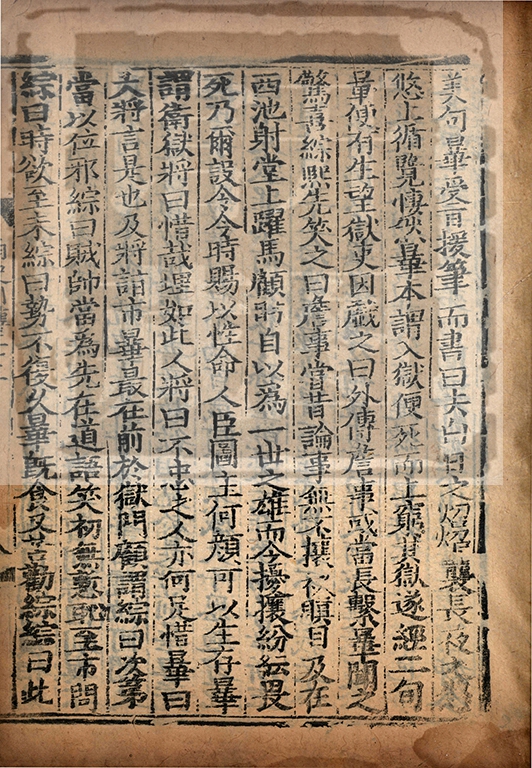 美句曄受旨援筆而書曰去白日之炤炤襲長夜之悠
悠上循覽悽然曄本謂入獄便死而上窮其獄遂經二旬
曄便有生望獄吏因戲之曰外傳詹事或當長繫曄聞之
驚喜綜熙先笑之曰詹事嘗昔論事無不攘袂瞋目及在
西池射堂上躍馬顧眄自以為一世之雄而今擾攘紛紜畏
死乃爾設令今時賜以性命人臣圖主何顏可以生存曄
謂衛獄將曰惜哉薶如此人將曰不忠之人亦何足惜曄曰
大將言是也及將詣市曄最在前於獄門顧謂綜曰次第
當以位邪綜曰賊帥當為先在道語笑初無慙恥至市問
綜曰時欲至未綜曰勢不復久曄既食又苦勸綜綜曰此